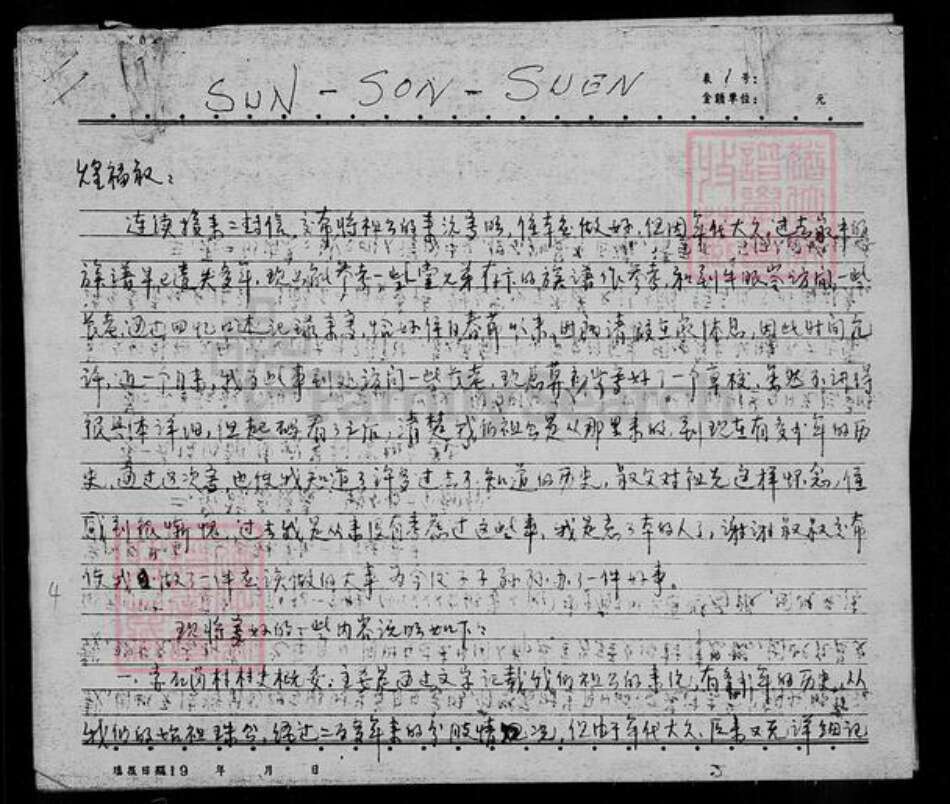 SUN - SON - SUEN
表 1 号:
金额单位: 元
煌福叔:
连续接来二封信,交布将祖公的事况写明,侄本应做好,但因年代太久,过去家中的
族谱早已遗失多年,现只能参考一些堂兄弟存下的族谱作参考,和到年眼岁访问一些
长老,通过回忆口述记录来写,恰好侄自春节以来,因病请假在家休息,因此时间充
许,近一个月来,我为此事到处访问一些长老,现写好了一个草枝,虽然不讲得
很具体详细,但起码有了了,清楚我们祖公是从那里来的,到现在有多少年的历
史,通过这次写也使我知道了许多过去不知道的历史,叔父对祖先这样怀念,侄
感到很惭愧,过去我是从来没有考虑过这些事,我是忘了本的人了,谢谢叔叔交布
使我做了一件应该做的大事,为今后子子孙孙办了一件好事。
现将写好的一些内容说明如下:
一、村村史概要:主要是通过文字记载我们祖公的事况,有多少年的历史,从
我们的始祖珠公,经过二百多年来的分肢情况,但由于年代太久,后来又无详细记
填报日期19 年 月 日